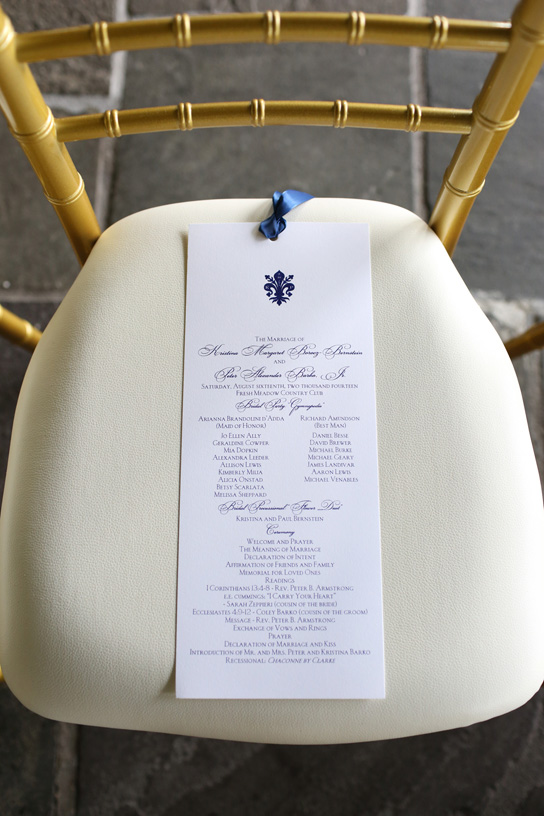 The Marriage of
Kristina Margaret Bernstein
and
Peter Alexander Barko, Jr.
Saturday, August sixteenth, two thousand fourteen
Fresh Meadow Country Club
Bridal Party "Gymnopedie"
Arianna Brandolini d'Adda
(Maid of Honor)
Jo Ellen Ally
Geraldine Cowfer
Mia Dopkin
Alexandra Leeder
Allison Lewis
Kimberly Milia
Alicia Onstad
Betsy Scarlata
Melissa Sheppard
Richard Amundson
(Best Man)
Daniel Besse
David Brewer
Michael Burke
Michael Geary
James Landivar
Aaron Lewis
Michael Venables
Bridal Processional "Flower Duet"
Kristina and Paul Bernstein
Ceremony
Welcome and Prayer
The Meaning of Marriage
Declaration of Intent
Affirmation of Friends and Family
Memorial for Loved Ones
Readings:
1 Corinthians 13:4-8 - Rev. Peter B. Armstrong
e.e. cummings: "I Carry Your Heart"
- Sarah Zeppieri (cousin of the bride)
Ecclesiastes 4:9-12 - Coley Barko (cousin of the groom)
Message - Rev. Peter B. Armstrong
Exchange of Vows and Rings
Prayer
Declaration of Marriage and Kiss
Introduction of Mr. and Mrs. Peter and Kristina Barko
Recessional: Chaconne by Clarke